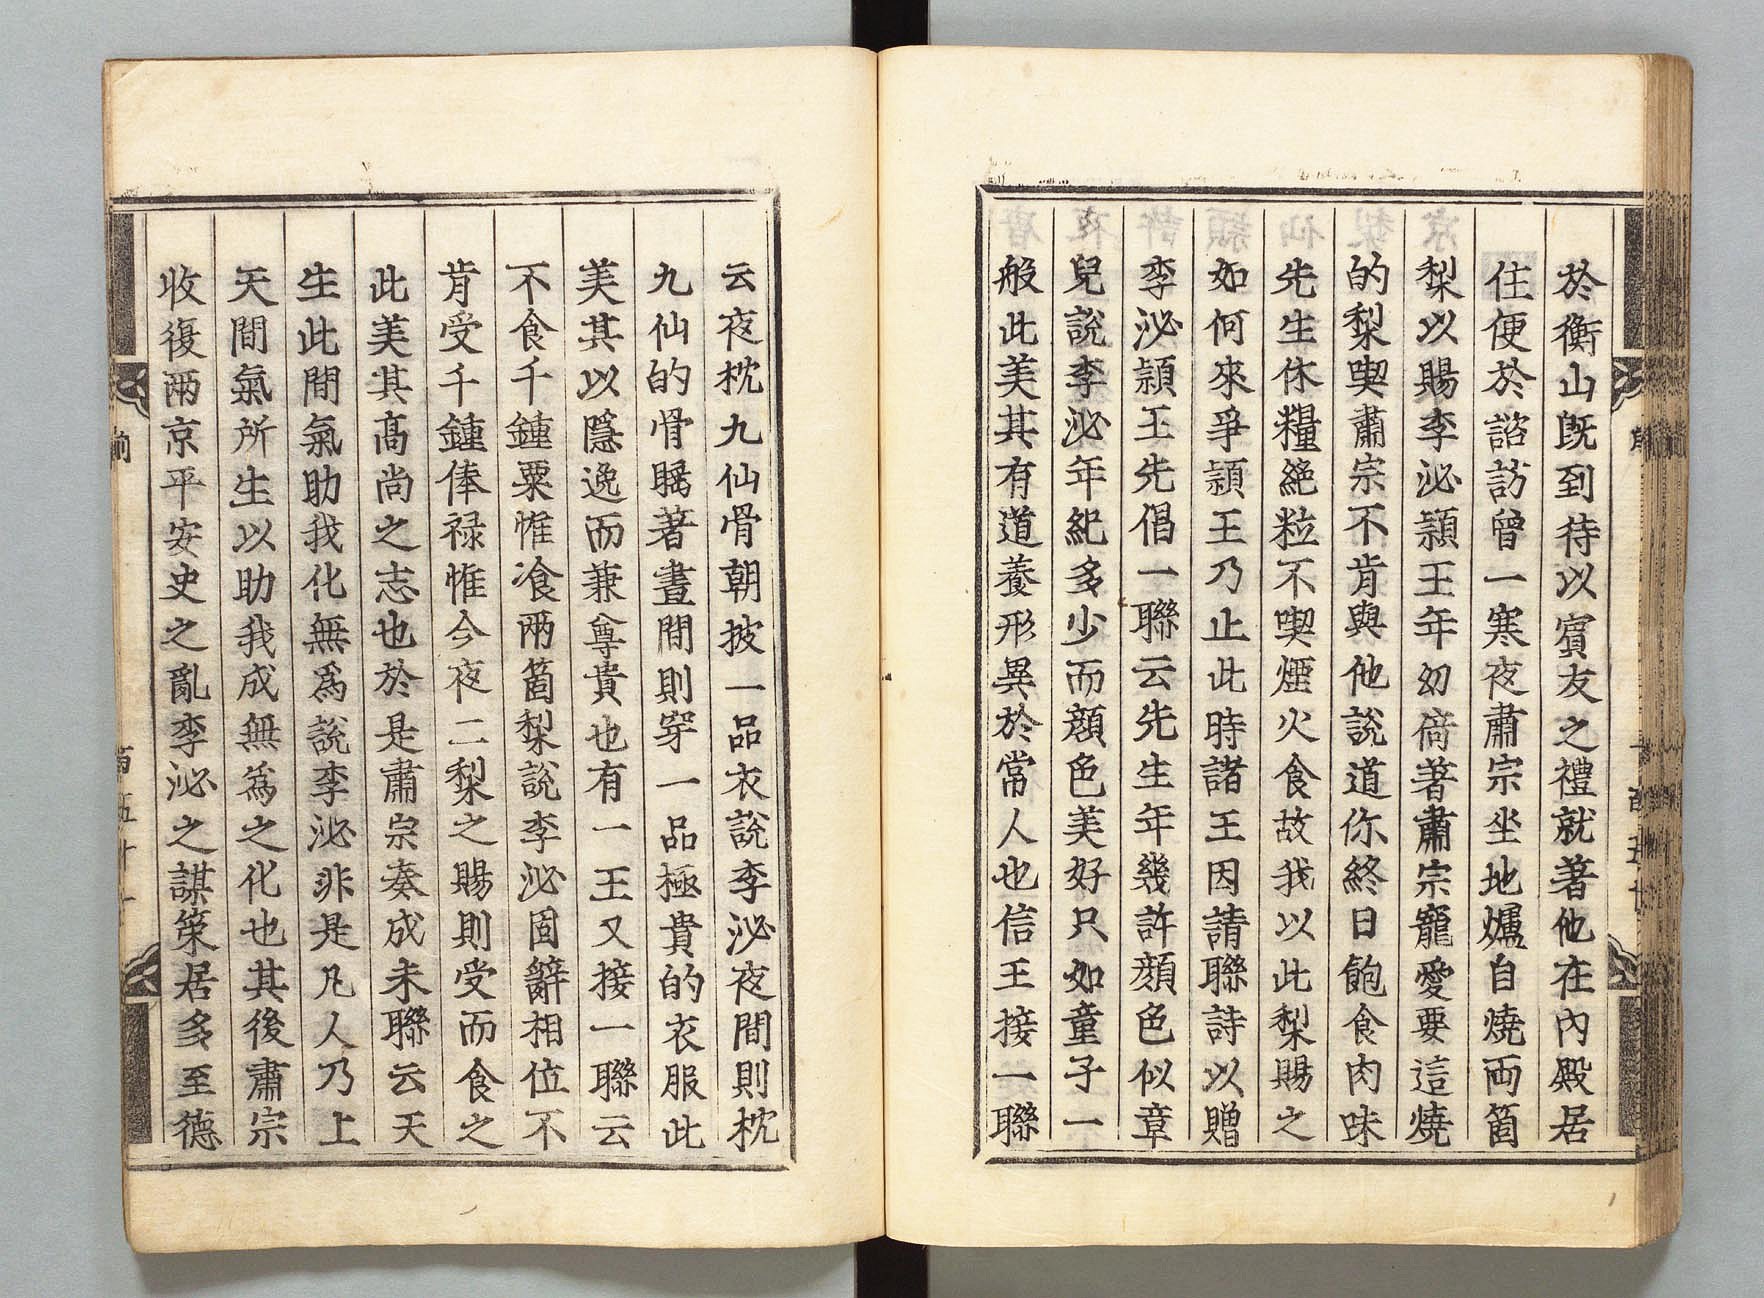 於衡山旣到待以賓友之禮就著他在內殿居
住便於諮訪曾一寒夜肅宗坐地爐自燒両箇
梨以賜李泌頴王年幼倚著肅宗寵愛要這燒
的梨喫肅宗不肯與他說道你終日飽食肉味
先生休糧絶粒不喫煙火食故我以此梨賜之
如何來爭頴王乃止此時諸王因請聯詩以贈
李泌頴王先倡一聯云先生年幾許顔色似童
兒說李泌年紀多少而顔色美好只如童子一
般此美其有道養形異於常人也信王接一聯
云夜枕九仙骨朝披一品衣說李泌夜間則枕
九仙的骨臅著晝間則穿一品極貴的衣服此
美其以隱逸而兼尊貴也有一王又接一聯云
不食千鍾粟惟飡兩箇梨說李泌固辭相位不
肯受千鍾俸禄惟今夜二梨之賜則受而食之
此美其高尚之志也於是肅宗奏成末聯云天
生此間氣助我化無爲說李泌非是凡人乃上
天間氣所生以助我成無爲之化也其後肅宗
收復兩京平安史之亂李泌之謀策居多至德